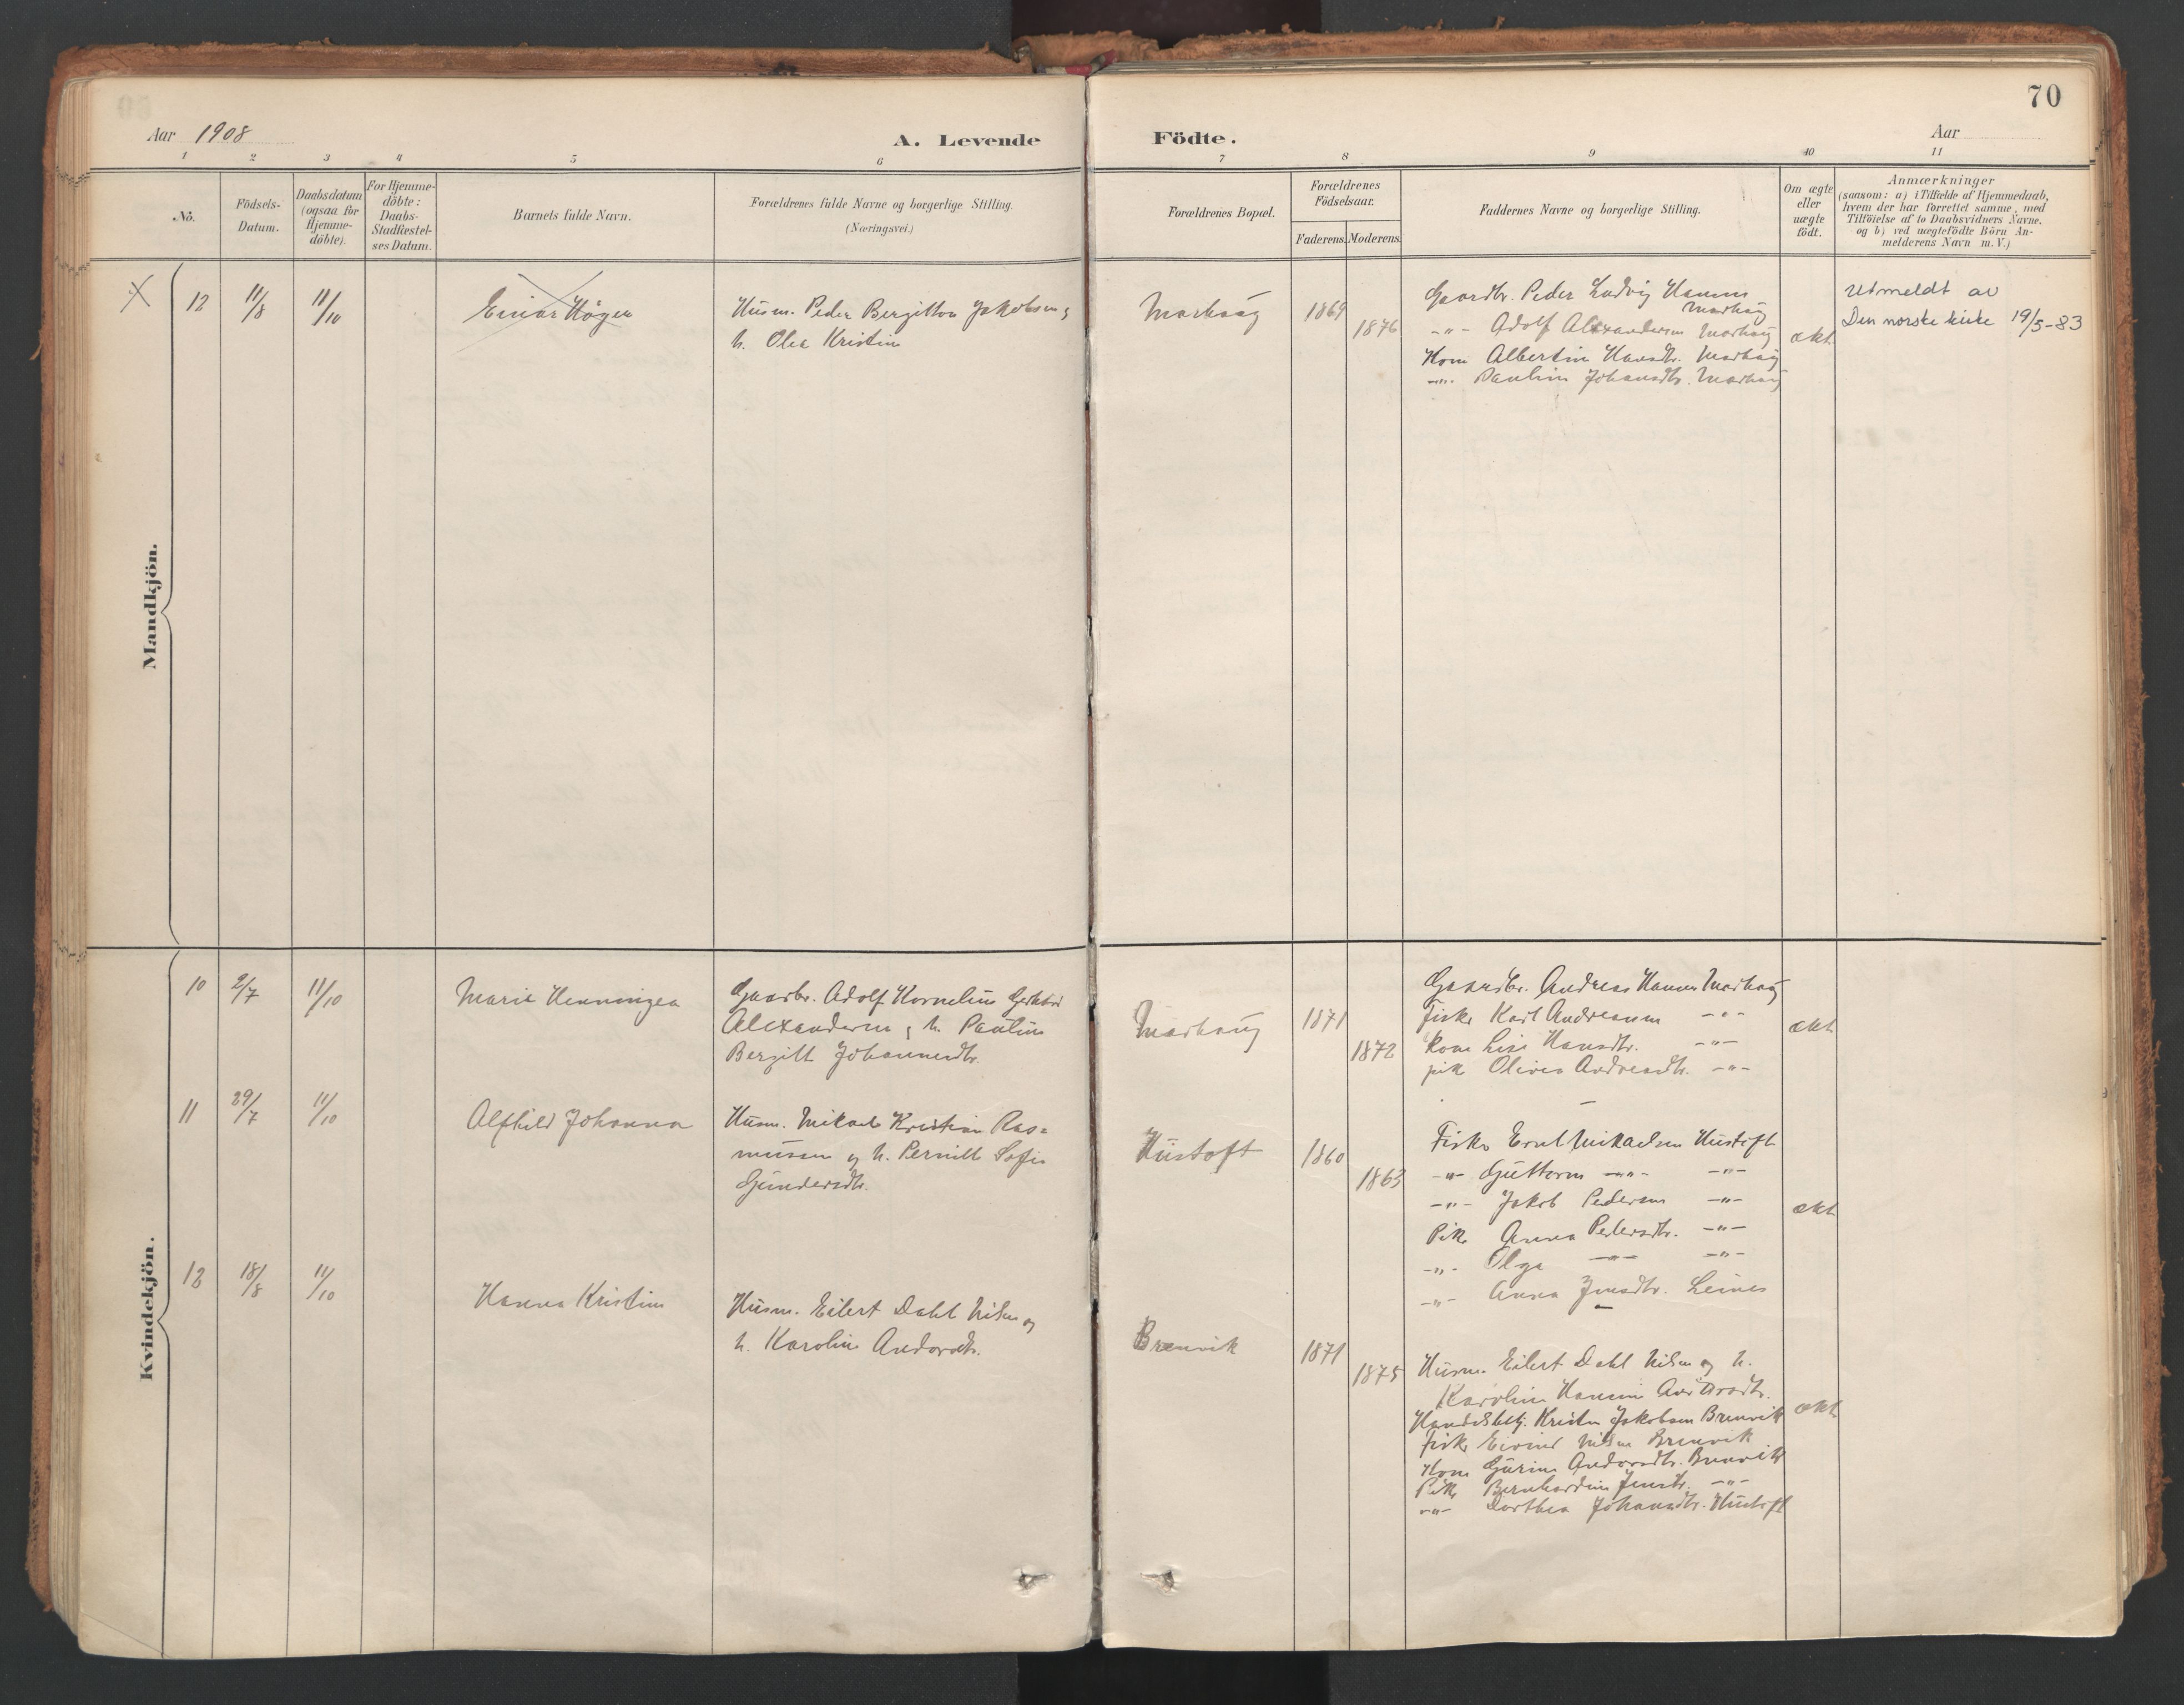 70
Aar 1908
A. Levende
Födte.
Aar
1 2 3 4 5 6 7 8 9 10 11
No.
Födsels-
Datum.
Daabsdatum
(ogsaa for
Hjemme-
döbte).
For Hjemme-
döbte:
Daabs-
Stadfæstel-
ses Datum.
Barnets fulde Navn.
Forældrenes fulde Navne og borgerlige Stilling.
(Næringsvei.)
Forældrenes Bopæl.
Forældrenes
Födselsaar.
Faderens. Moderens.
Faddernes Navne og borgerlige Stilling.
Om ægte
eller
uægte
födt.
Anmærkninger
(saasom: a) i Tilfælde af Hjemmedaab,
hvem der har forrettet samme, med
Tilföielse af to Daabsvidners Navne.
og b) ved uægtefödte Börn An-
melderens Navn m. V.)
Mandkjön.
X 12 11/8 11/10
Einar Höger
Husm. Peder Bergitton Jakobsen og
h. Olea Kristin
Marhaug
1869
1876
Gaardbr. Peder Ludvig Hansen
Marhaug
-"- Adolf Alexandersen Marhaug
Kone Albertin Hansdtr. Marhaug
-"- Paulin Johansdtr. Marhaug
ekt
Utmeldt av
Den norske kirke 19/5-83
Kvindekjön.
10 2/7 11/10
Marie Henningea
Gaarbr. Adolf Kornelius
Alexandersen og h. Pauline
Bergitt Johannesdtr.
Marhaug
1871
1872
Gaardbr. Andreas Hansen Marhaug
Fisker Karl Andreassen -"-
Kone Lise Hansdtr. -"-
pike Olivia Andreasdtr. -"-
ekt
11 29/7 11/10
Alfhild Johanna
Husm. Mikael Kristian Ras=
mussen og h. Pernille Sofie
Gundersdtr.
Hustoft
1860
1863
Fisker Ernt Mikaelsen Hustoft
-"- Guttorm -"- -"-
-"- Jakob Pedersen -"-
Pike Anna Pedersdtr. -"-
-"- Olga -"- -"-
-"- Anna Jensdtr. Leines
ekt
12 18/8 11/10
Hanna Kristine
Husm. Eilert Dahl Nilsen og
h. Karoline Andorsdtr.
Brenvik
1871
1875
Husm. Eilert Dahl Nilsen og h.
Karoline Hansine Andorsdtr.
Handelsbetj. Kristen Jakobsen Brenvik
Fisker Eivind Nilsen Brenvik
Kone Gurine Andorsdtr. Brenvik
Pike Bernhardine Jensdtr. -"-
-"- Dorthea Johansdtr. Hustoft
ekt